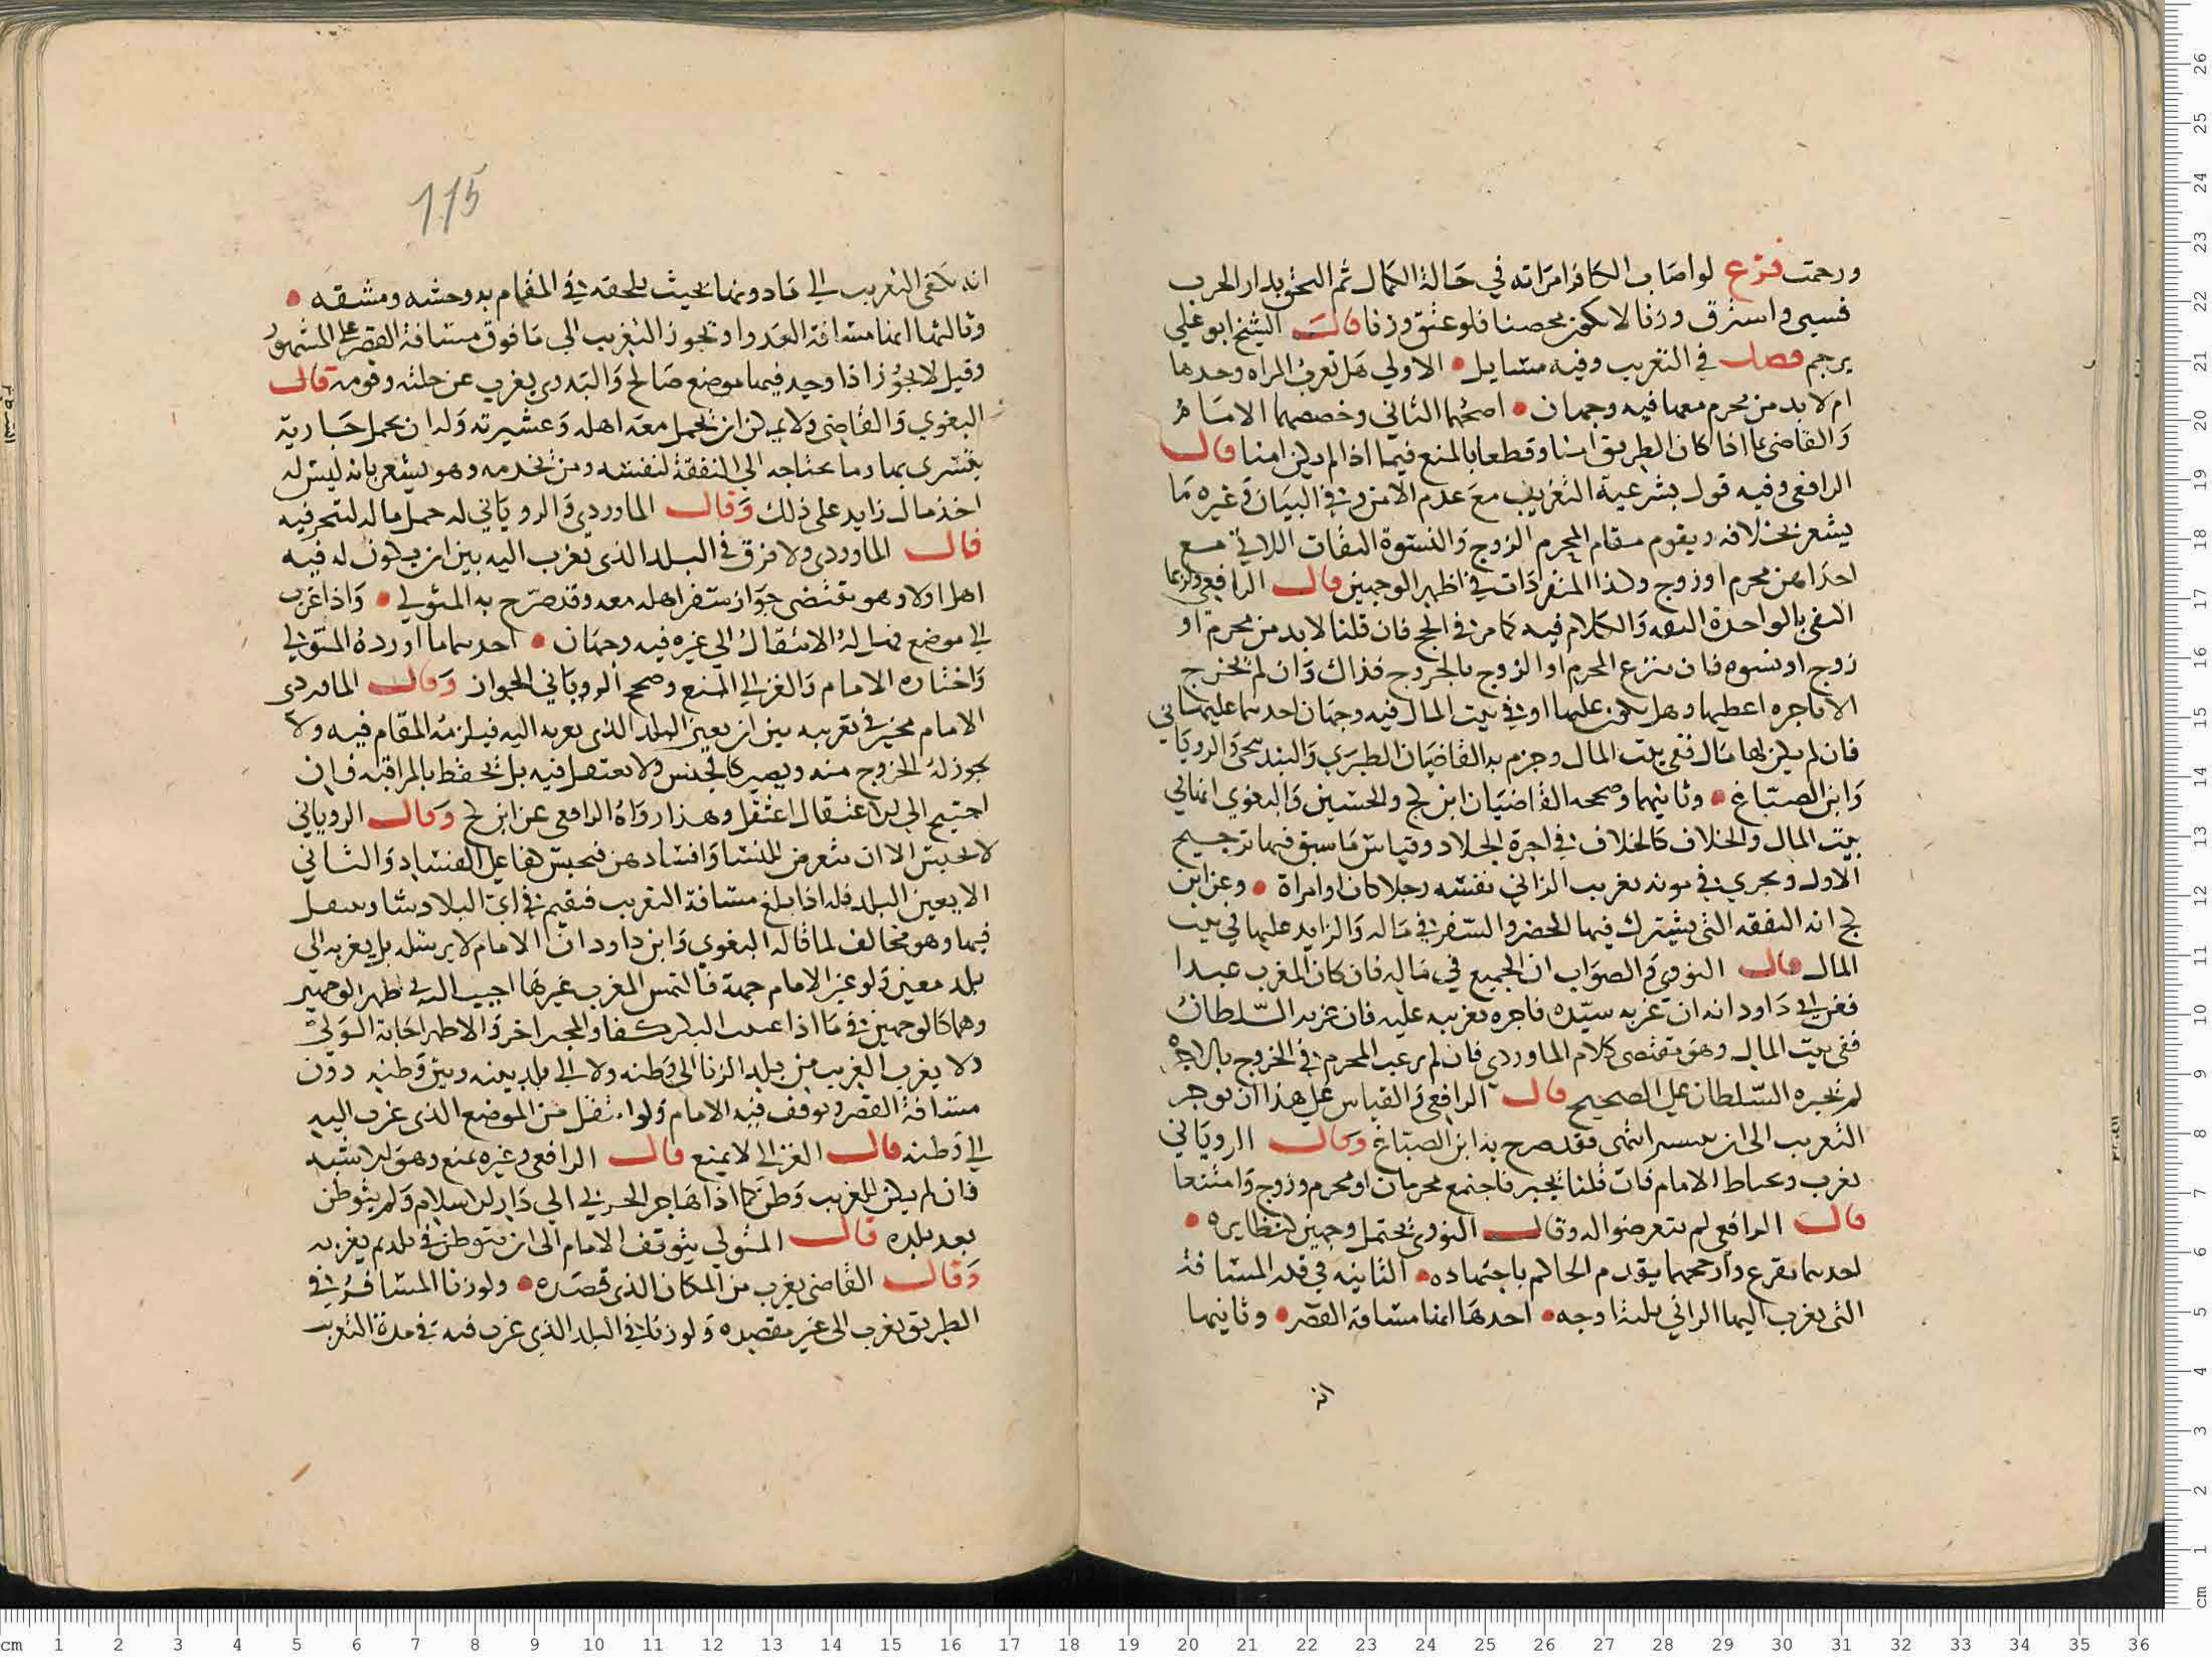 ورجمت فرع لو اصاب الكافر امراته في حالة الكمال ثم التحق بدار الحرب
فسبي واسترق وزنا لا يكون محصنا فلو عتق وزنا قال الشيخ ابو علي
يرجم فصل في التغريب وفيه مسايل الاولي هل تغرب المراه وحدها
ام لا بد من محرم معها فيه وجهان اصحهما الثاني وخصصهما الامام
والقاضي بما اذا كان الطريق امنا وقطعا بالمنع فيما اذا لم يكن امنا قال
الرافعي وفيه قول بشرعية التغريب مع عدم الامن وفي البيان وغيره ما
يشعر بخلافه ويقوم مقام المحرم الزوج والنسوة الثقات اللاتي مع
احداهن محرم او زوج وكذا المنفردات في اظهر الوجهين قال الرافعي وربما
اكتفي بالواحدة الثقه والكلام فيه كما مر في الحج فان قلنا لا بد من محرم او
زوج او نسوه فان تبرع المحرم او الزوج بالخروج فذاك وان لم يخرج
الا باجره اعطيها وهل تكون عليها او في بيت المال فيه وجهان احدهما عليها
فان لم يكن لها مال ففي بيت المال وجزم به القاضيان الطبري والبندنيجي والروياني
وابن الصباغ وثانيهما وصححه القاضيان ابن كج والحسين والبغوي انها في
بيت المال والخلاف كالخلاف في اجرة الجلاد وقياس ما سبق فيها ترجيح
الاول ويجري في مونه تغريب الزاني نفسه رجلا كان او امراة وعن ابن
كج انه النفقه التي يشترك فيها الحضر والسفر في ماله والزايد عليها في بيت
المال قال النووي والصواب ان الجميع في ماله فان كان المغرب عبدا
فعن ابي داود انه ان غربه سيده فاجره تغريبه عليه فان غربه السلطان
ففي بيت المال وهو مقتضى كلام الماوردي فان لم يرغب المحرم في الخروج بالاجره
لم يجبره السلطان على الصحيح قال الرافعي والقياس على هذا ان يوخر
التغريب الى ان يتيسر انتهى فقد صرح به ابن الصباغ وقال الروياني
تغرب ويحتاط الامام فان قلنا يجبر فاجتمع محرمان او محرم وزوج وامتنعا
قال الرافعي لم يتعرضوا له وقال النووي يحتمل وجهين كنظايره
احدهما يقرع وارجحهما يقدم الحاكم باجتهاده الثانيه في قدر المسافة
التي يغرب اليها الزاني ثلثة اوجه احدها انها مسافة القصر وثانيها
انه
115
انه يكفي التغريب الي ما دونها بحيث يلحقه في المقام به وحشه ومشقه
وثالثها انها مسافة العدوا ويجوز التغريب الي ما فوق مسافة القصر على المشهور
وقيل لا يجوز اذا وجد فيها موضع صالح والبدوي يغرب عن حلته وقومه قال
البغوي والقاضي ولا يمكن ان يحمل معه اهله وعشيرته وله ان يحمل جاريه
يتسرى بها وما يحتاجه الي النفقة لنفسه ومن يخدمه وهو يشعر بانه ليس له
اخذ مال زايد على ذلك وقال الماوردي والروياني له حمل ماله ليتجر فيه
قال الماوردي ولا فرق في البلد الذي يغرب اليه بين ان يكون له فيه
اهل اولا وهو يقتضى جواز سفر اهله معه وقد صرح به المتولي واذا غرب
الي موضع فهل له الانتقال الي غيره فيه وجهان احدهما ما اورده المتولي
واختاره الامام والغزالي المنع وصحح الروياني الجواز وقال الماوردي
الامام مخير في تغريبه بين ان يعين البلد الذي يغربه اليه فيلزمه المقام فيه ولا
يجوز له الخروج منه ويصير كالحبس ولا يعتقل فيه بل يحفظ بالمراقبه فان
احتيج الي الاعتقال اعتقل وهذا رواه الرافعي عن ابن كج وقال الروياني
لا يحبس الا ان يتعرض للنسا وافسادهن فيحبس كفا عن الفساد والثاني
الا يعين البلد فله اذا بلغ مسافة التغريب فيقيم في اي البلاد شا وينتقل
فيها وهو مخالف لما قاله البغوي وابن داود ان الامام لا يرسله بل يغربه الى
بلد معين ولو عين الامام جهة فالتمس المغرب غيرها اجيب اليه في اظهر الوجهين
وهما كالوجهين في ما اذا عينت البكر كفئا والمجبر اخر والاظهر اجابة الولي
ولا يغرب الغريب من بلد الزنا الي وطنه ولا الي بلد بينه وبين وطنه دون
مسافة القصر ويوقف فيه الامام ولو انتقل من الموضع الذي غرب اليه
الي وطنه قال الغزالي لا يمنع قال الرافعي وغيره يمنع وهو الاشبه
فان لم يكن للغريب وطن كما اذا هاجر الحربي الي دار الاسلام ولم يتوطن
بعد بلده قال المتولي يتوقف الامام الى ان يتوطن في بلد ثم يغربه
وقال القاضي يغرب من المكان الذي قصده ولو زنا المسافر في
الطريق يغرب الى غير مقصده ولو زنا في البلد الذي غرب فيه في مدة التغريب